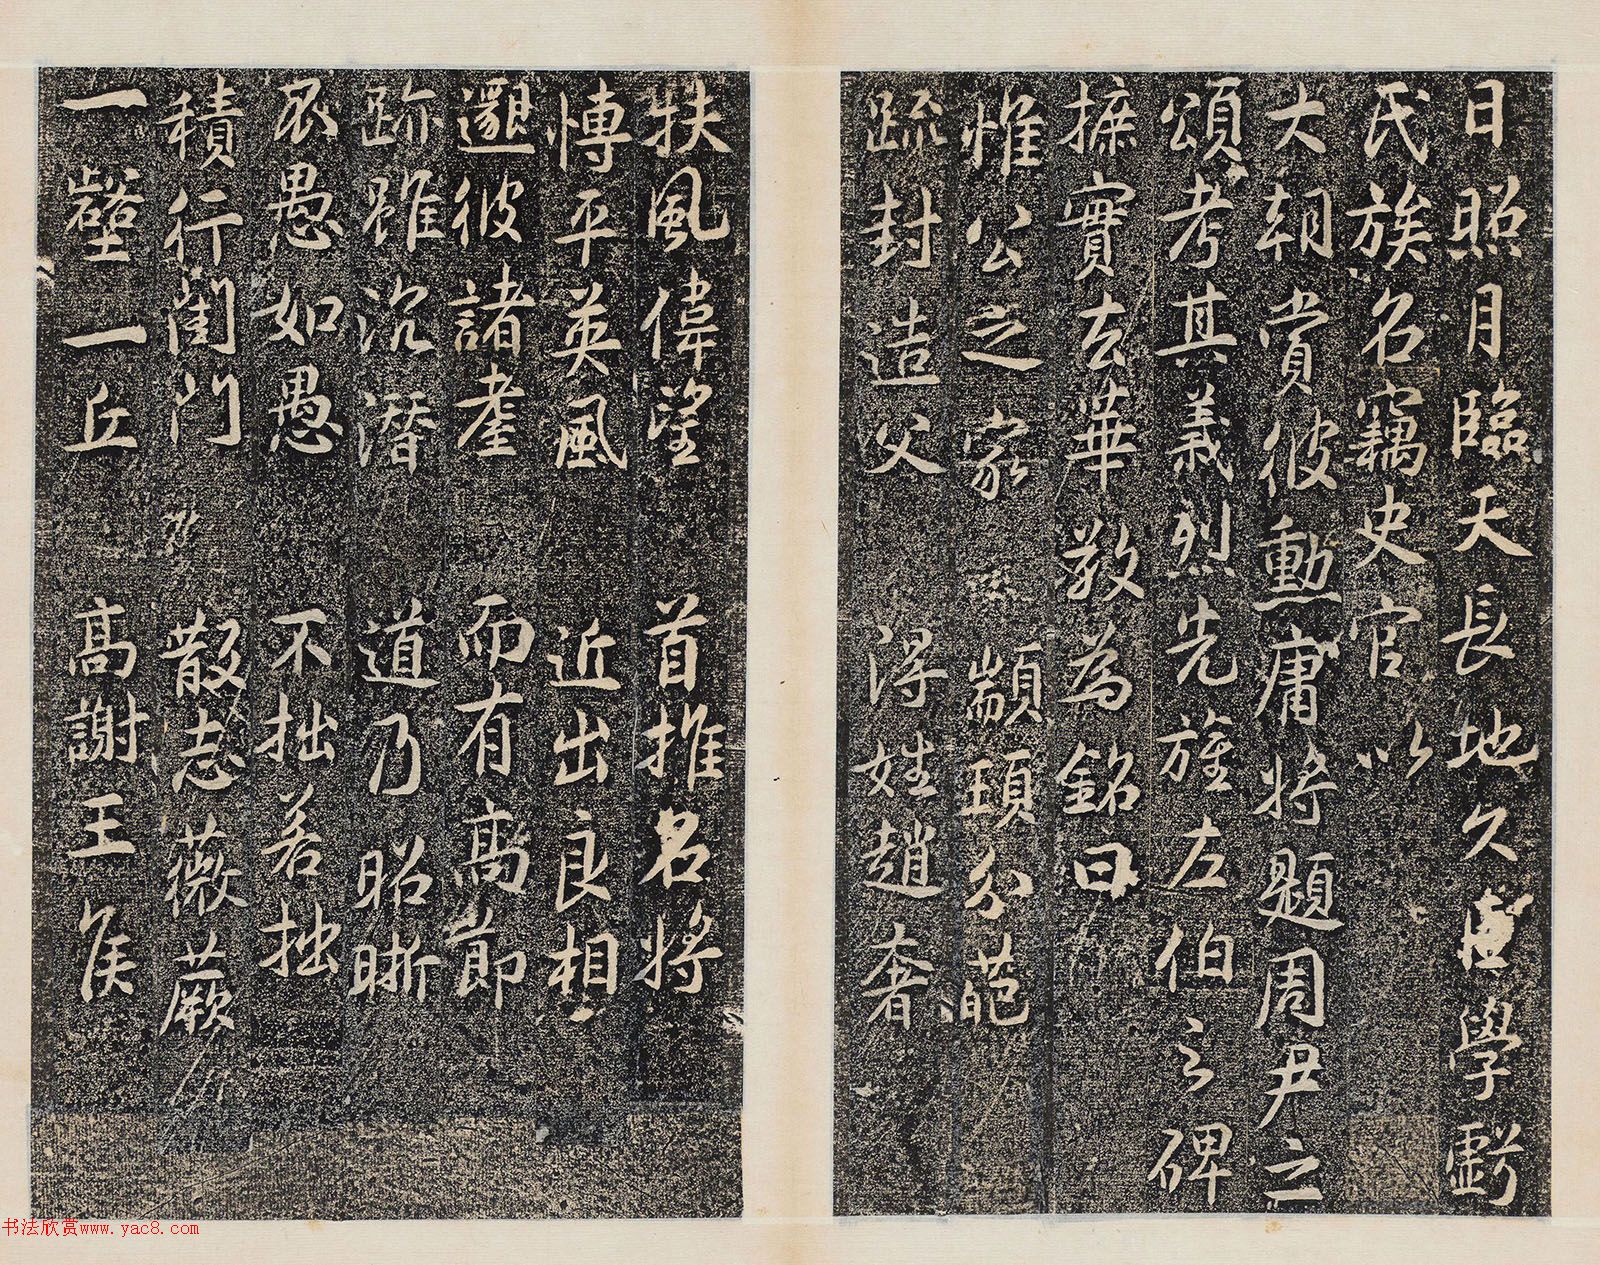 日照月臨天長地久儘學虧
氏族名竊史官以
大朝賞彼勳庸將題周尹之
頌考其義烈先旌左伯之碑
摭實去華敬為銘曰
惟公之家 顓頊分葩
疏封造父 得姓趙奢
扶風偉望 首推名將
博平英風 近出良相
邈彼諸耋 而有高節
跡雖沉潛 道乃昭晣
畏愚如愚 不拙若拙
積行閨門 散志薇蕨
一壑一丘 高謝王侯
书法欣赏www.yac8.com